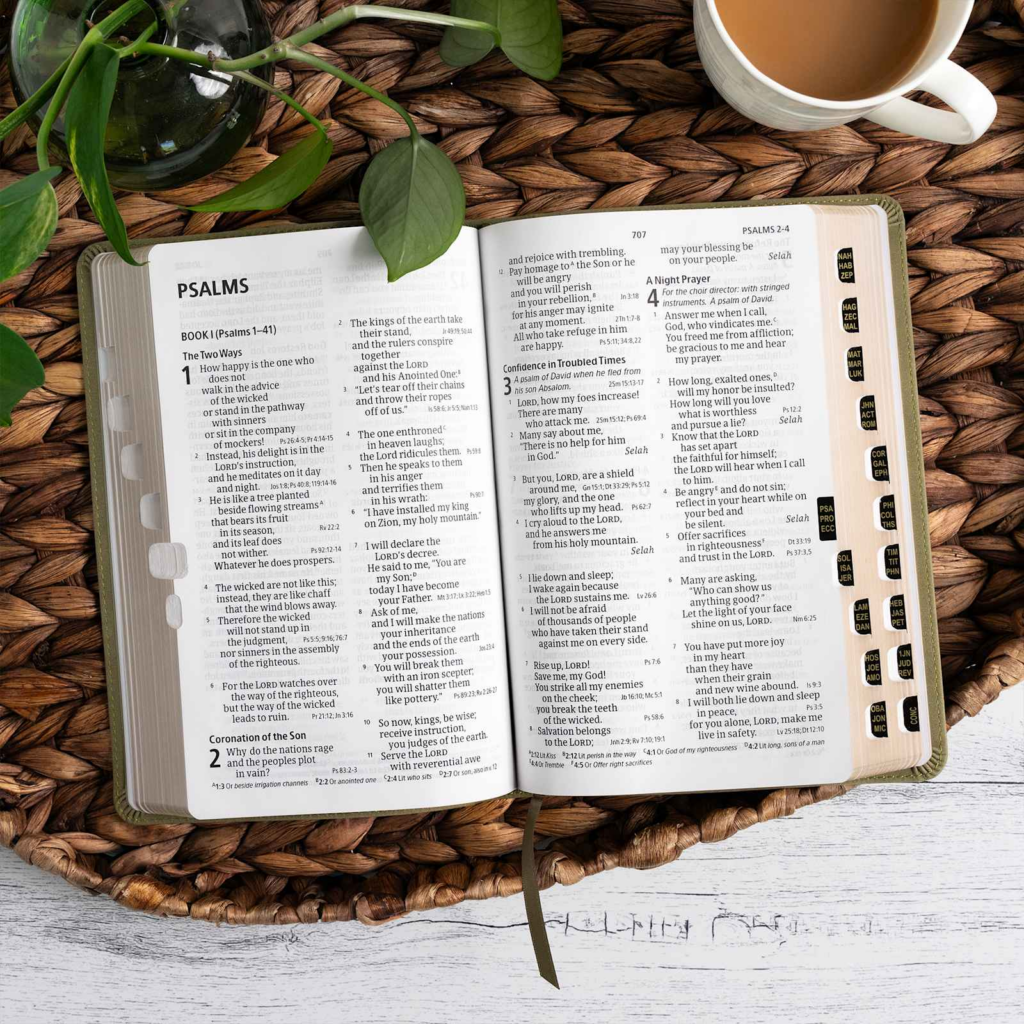 PSALMS
BOOK I (Psalms 1–41)
The Two Ways
1 How happy is the one who
does not
walk in the advice
of the wicked
or stand in the pathway
with sinners
or sit in the company
of mockers! Ps 26:4-5; Pr 4:14-15
2 Instead, his delight is in the
LORD's instruction,
and he meditates on it day
and night. Jos 1:8; Ps 40:8; 119:14-16
3 He is like a tree planted
beside flowing streams^A
that bears its fruit
in its season, Rv 22:2
and its leaf does
not wither. Ps 92:12-14
Whatever he does prospers.
4 The wicked are not like this;
instead, they are like chaff
that the wind blows away.
5 Therefore the wicked
will not stand up in
the judgment, Ps 5:5; 9:16; 76:7
nor sinners in the assembly
of the righteous.
6 For the LORD watches over
the way of the righteous,
but the way of the wicked
leads to ruin. Pr 21:12; Jn 3:16
Coronation of the Son
2 Why do the nations rage
and the peoples plot
in vain? Ps 83:2-3
2 The kings of the earth take
their stand,
and the rulers conspire
together
against the LORD
and his Anointed One:^B
3 "Let's tear off their chains
and throw their ropes
off of us." Is 58:6; Jr 5:5; Nah 1:13
4 The one enthroned^C
in heaven laughs;
the Lord ridicules them. Ps 59:8
5 Then he speaks to them
in his anger
and terrifies them
in his wrath: Ps 90:7
6 "I have installed my king
on Zion, my holy mountain."
7 I will declare the
LORD's decree.
He said to me, "You are
my Son;^D
today I have become
your Father. Mt 3:17; Lk 3:22; Heb 1:5
8 Ask of me,
and I will make the nations
your inheritance
and the ends of the earth
your possession. Jos 23:4
9 You will break them
with an iron scepter;
you will shatter them
like pottery." Ps 89:23; Rv 2:26-27
10 So now, kings, be wise;
receive instruction,
you judges of the earth.
11 Serve the LORD
with reverential awe
^A1:3 Or beside irrigation channels ^B2:2 Or anointed one ^C2:4 Lit who sits ^D2:7 Or son, also in v. 12
707
PSALMS 2-4
and rejoice with trembling.
12 Pay homage to^A the Son or he
will be angry
and you will perish
in your rebellion,^B Jn 3:18
for his anger may ignite
at any moment. 2Th 1:7-8
All who take refuge in him
are happy. Ps 5:11; 34:8,22
Confidence in Troubled Times
3 A psalm of David when he fled from
his son Absalom. 2Sm 15:13-17
1 LORD, how my foes increase!
There are many
who attack me. 2Sm 15:12; Ps 69:4
2 Many say about me,
"There is no help for him
in God." Selah
3 But you, LORD, are a shield
around me, Gn 15:1; Dt 33:29; Ps 5:12
my glory, and the one
who lifts up my head. Ps 62:7
4 I cry aloud to the LORD,
and he answers me
from his holy mountain.
Selah
5 I lie down and sleep;
I wake again because
the LORD sustains me. Lv 26:6
6 I will not be afraid
of thousands of people
who have taken their stand
against me on every side.
7 Rise up, LORD! Ps 7:6
Save me, my God!
You strike all my enemies
on the cheek; Jb 16:10; Mc 5:1
you break the teeth
of the wicked. Ps 58:6
8 Salvation belongs
to the LORD; Jnh 2:9; Rv 7:10; 19:1
may your blessing be
on your people. Selah
A Night Prayer
4 For the choir director: with stringed
instruments. A psalm of David.
1 Answer me when I call,
God, who vindicates me.^C
You freed me from affliction;
be gracious to me and hear
my prayer.
2 How long, exalted ones,^D
will my honor be insulted?
How long will you love
what is worthless Ps 12:2
and pursue a lie? Selah
3 Know that the LORD
has set apart
the faithful for himself;
the LORD will hear when I call
to him.
4 Be angry^E and do not sin;
reflect in your heart while on
your bed and
be silent. Selah
5 Offer sacrifices
in righteousness^F Dt 33:19
and trust in the LORD. Ps 37:3,5
6 Many are asking,
"Who can show us
anything good?"
Let the light of your face
shine on us, LORD. Nm 6:25
7 You have put more joy
in my heart
than they have
when their grain
and new wine abound. Is 9:3
8 I will both lie down and sleep
in peace, Ps 3:5
for you alone, LORD, make me
live in safety. Lv 25:18; Dt 12:10
^A2:12 Lit Kiss ^B2:12 Lit perish in the way ^C4:1 Or God of my righteousness ^D4:2 Lit long, sons of a man
^E4:4 Or Tremble ^F4:5 Or Offer right sacrifices
NAH HAB ZEP
HAG ZEC MAL
MAT MAR LUK
JHN ACT ROM
COR GAL EPH
PSA PRO ECC
PHI COL THS
SOL ISA JER
TIM TIT PHN
LAM EZE DAN
HEB JAS PET
HOS JOE AMO
1JN JUD REV
OBA JON MIC
CONC